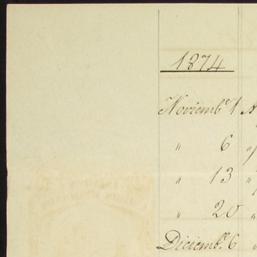 1874
Noviemb.e 1 A
" 6 "
" 13 "
" 20 "
Diciemb.e 6 "